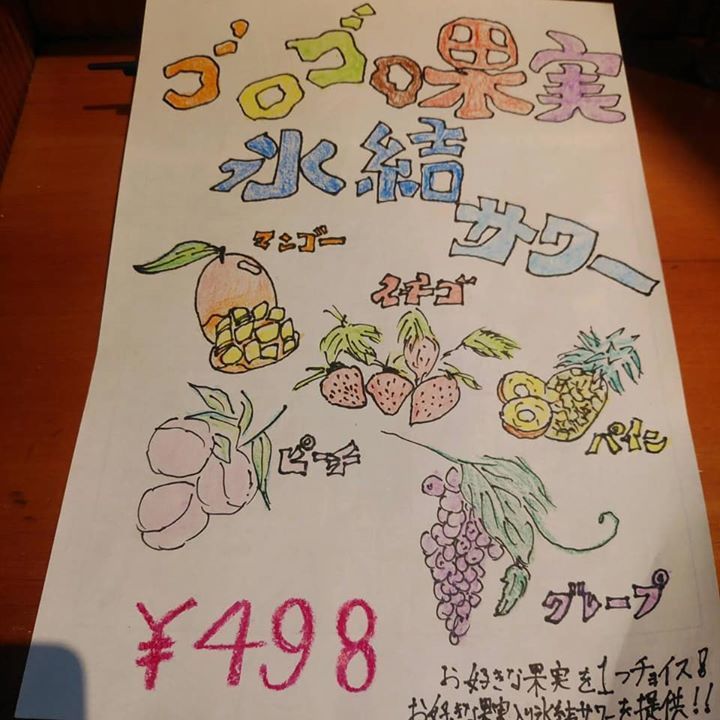 ゴロゴロ果実
氷結
サワー
マンゴー
イチゴ
パイン
ピーチ
グレープ
¥498
お好きな果実を1つチョイス!
お好きな果実入り氷結サワーを提供!!